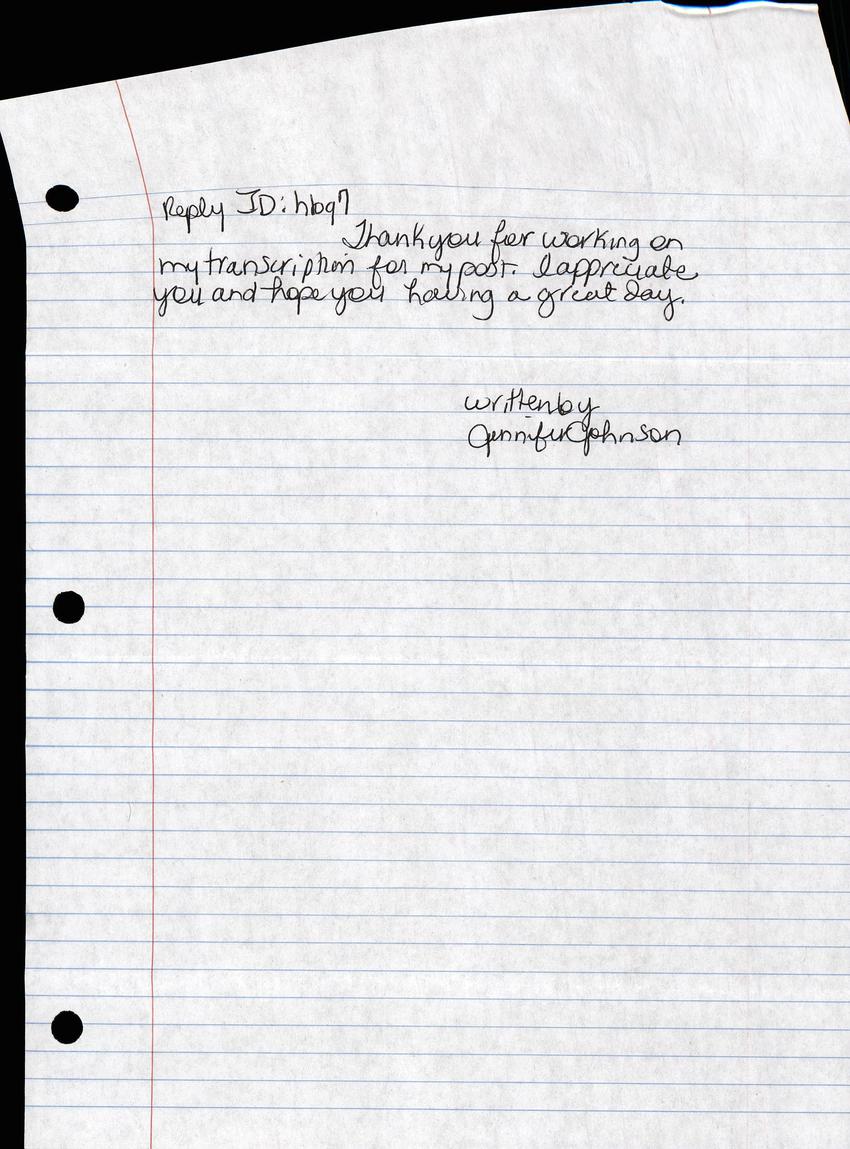 Reply ID: hbq7
Thank you for working on
my transcription for my post. I appreciate
you and hope you having a great day.
written by
Jennifer Johnson